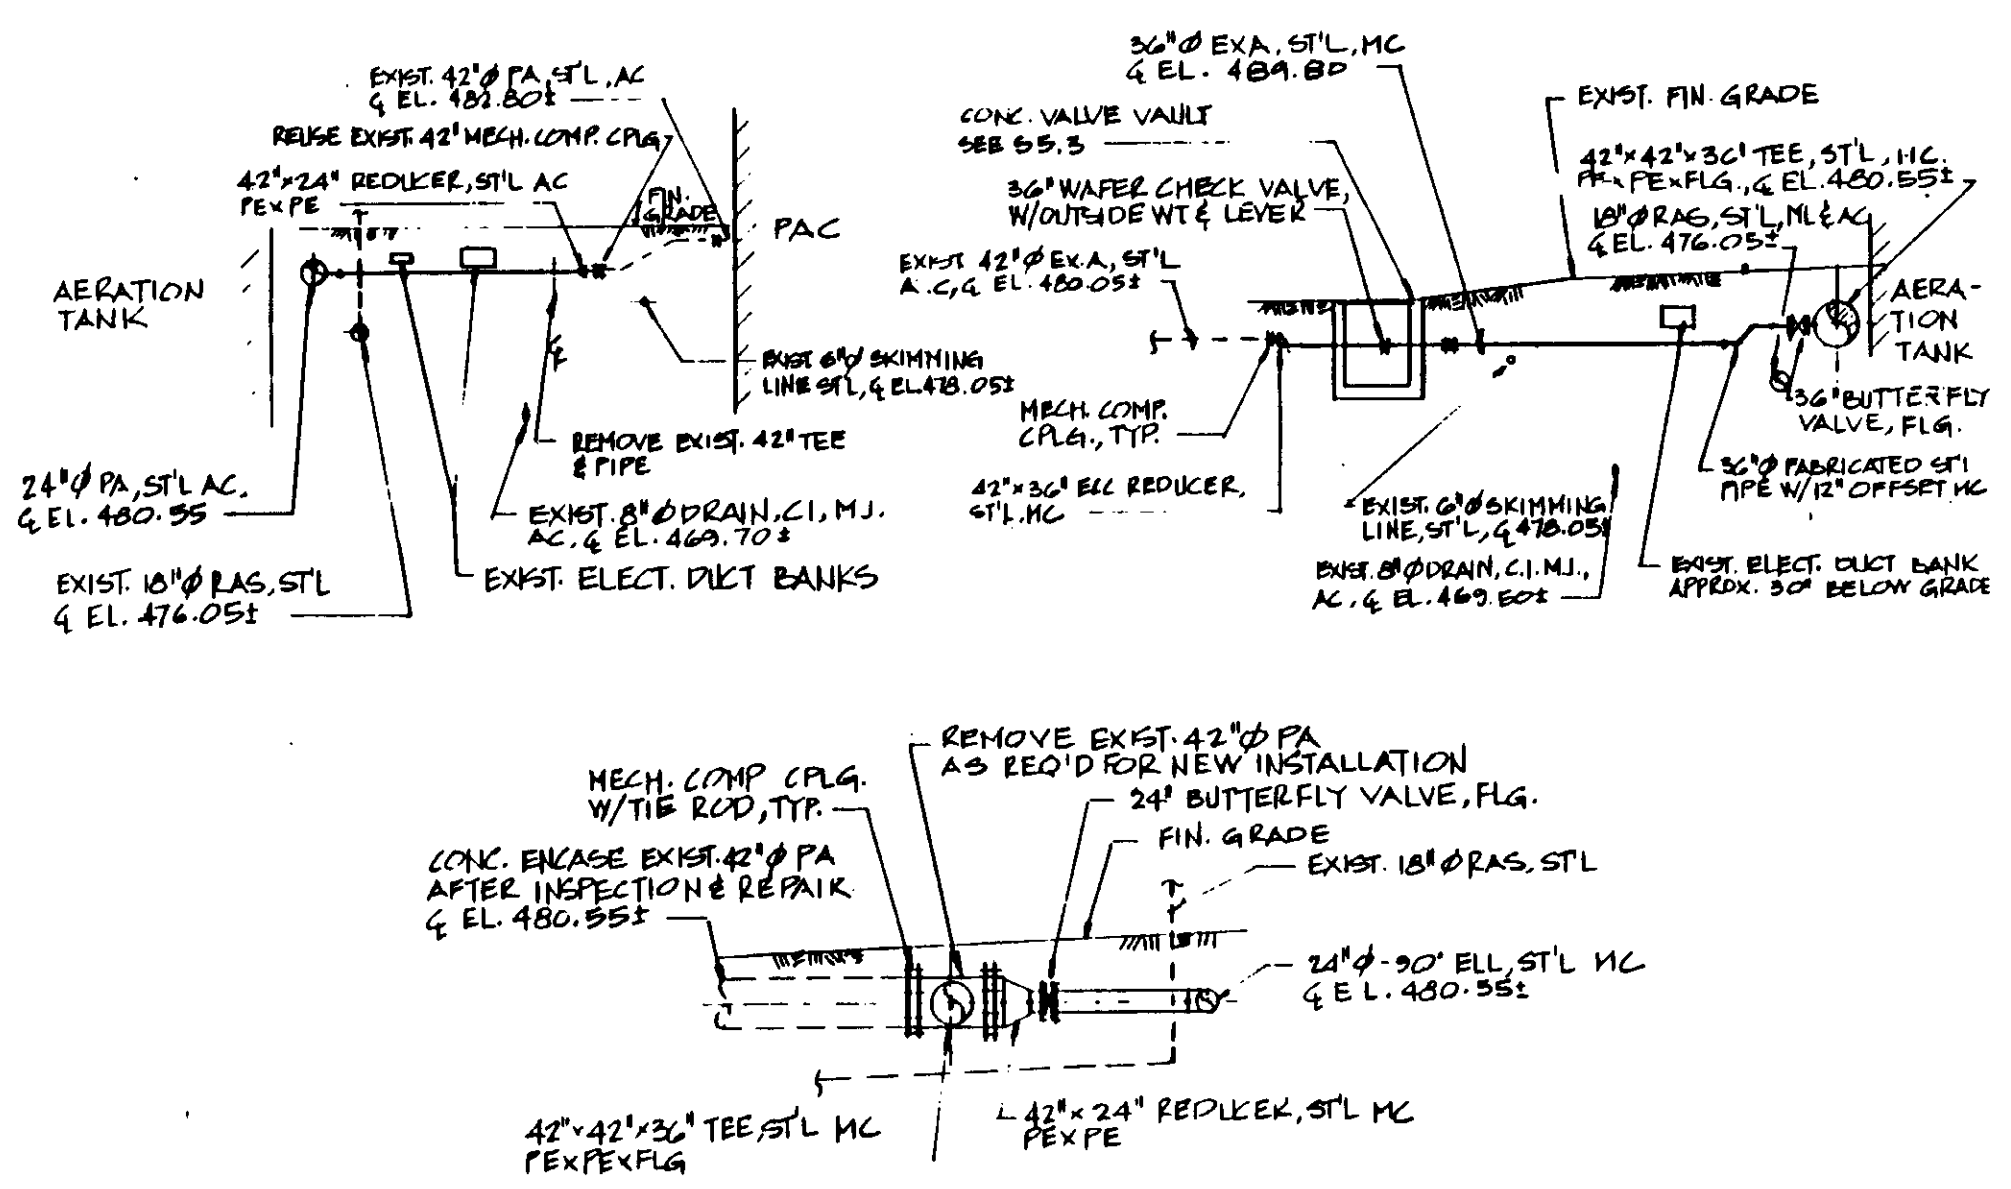 EXIST. 42"Ø PA, ST'L, AC
℄ EL. 482.80±
REUSE EXIST. 42" MECH. COMP. CPLG
42"x24" REDUCER, ST'L AC
PExPE
FIN.
GRADE
PAC
AERATION
TANK
EXIST 6"Ø SKIMMING
LINE ST'L, ℄ EL. 478.05±
REMOVE EXIST. 42" TEE
& PIPE
24"Ø PA, ST'L AC.
℄ EL. 480.55
EXIST. 8"Ø DRAIN, CI, MJ.
AC. ℄ EL. 469.70±
EXIST. ELECT. DUCT BANKS
EXIST. 18"Ø RAS, ST'L
℄ EL. 476.05±
36"Ø EXA, ST'L, MC
℄ EL. 489.80
CONC. VALVE VAULT
SEE S5.3
EXIST. FIN. GRADE
36" WAFER CHECK VALVE,
W/OUTSIDE WT & LEVER
42"x42"x36" TEE, ST'L, MC.
PExPExFLG., ℄ EL. 480.55±
18"Ø RAS, ST'L, ML & AC
℄ EL. 476.05±
EXIST 42"Ø EX.A, ST'L
A.C, ℄ EL. 480.05±
AERA-
TION
TANK
MECH. COMP.
CPLG., TYP.
36" BUTTERFLY
VALVE, FLG.
42"x36" ECC REDUCER,
ST'L, MC
EXIST. 6"Ø SKIMMING
LINE, ST'L, ℄ 478.05±
36"Ø FABRICATED ST'L
PIPE W/12" OFFSET MC
EXIST. 8"Ø DRAIN, C.I. MJ.,
AC. ℄ EL. 469.60±
EXIST. ELECT. DUCT BANK
APPROX. 30" BELOW GRADE
REMOVE EXIST. 42"Ø PA
AS REQ'D FOR NEW INSTALLATION
MECH. COMP CPLG.
W/TIE ROD, TYP.
24" BUTTERFLY VALVE, FLG.
FIN. GRADE
EXIST. 18"Ø RAS, ST'L
CONC. ENCASE EXIST. 42"Ø PA
AFTER INSPECTION & REPAIR
℄ EL. 480.55±
24"Ø-90° ELL, ST'L MC
℄ EL. 480.55±
42"x42"x36" TEE, ST'L MC
PExPExFLG
42"x24" REDUCER, ST'L MC
PExPE